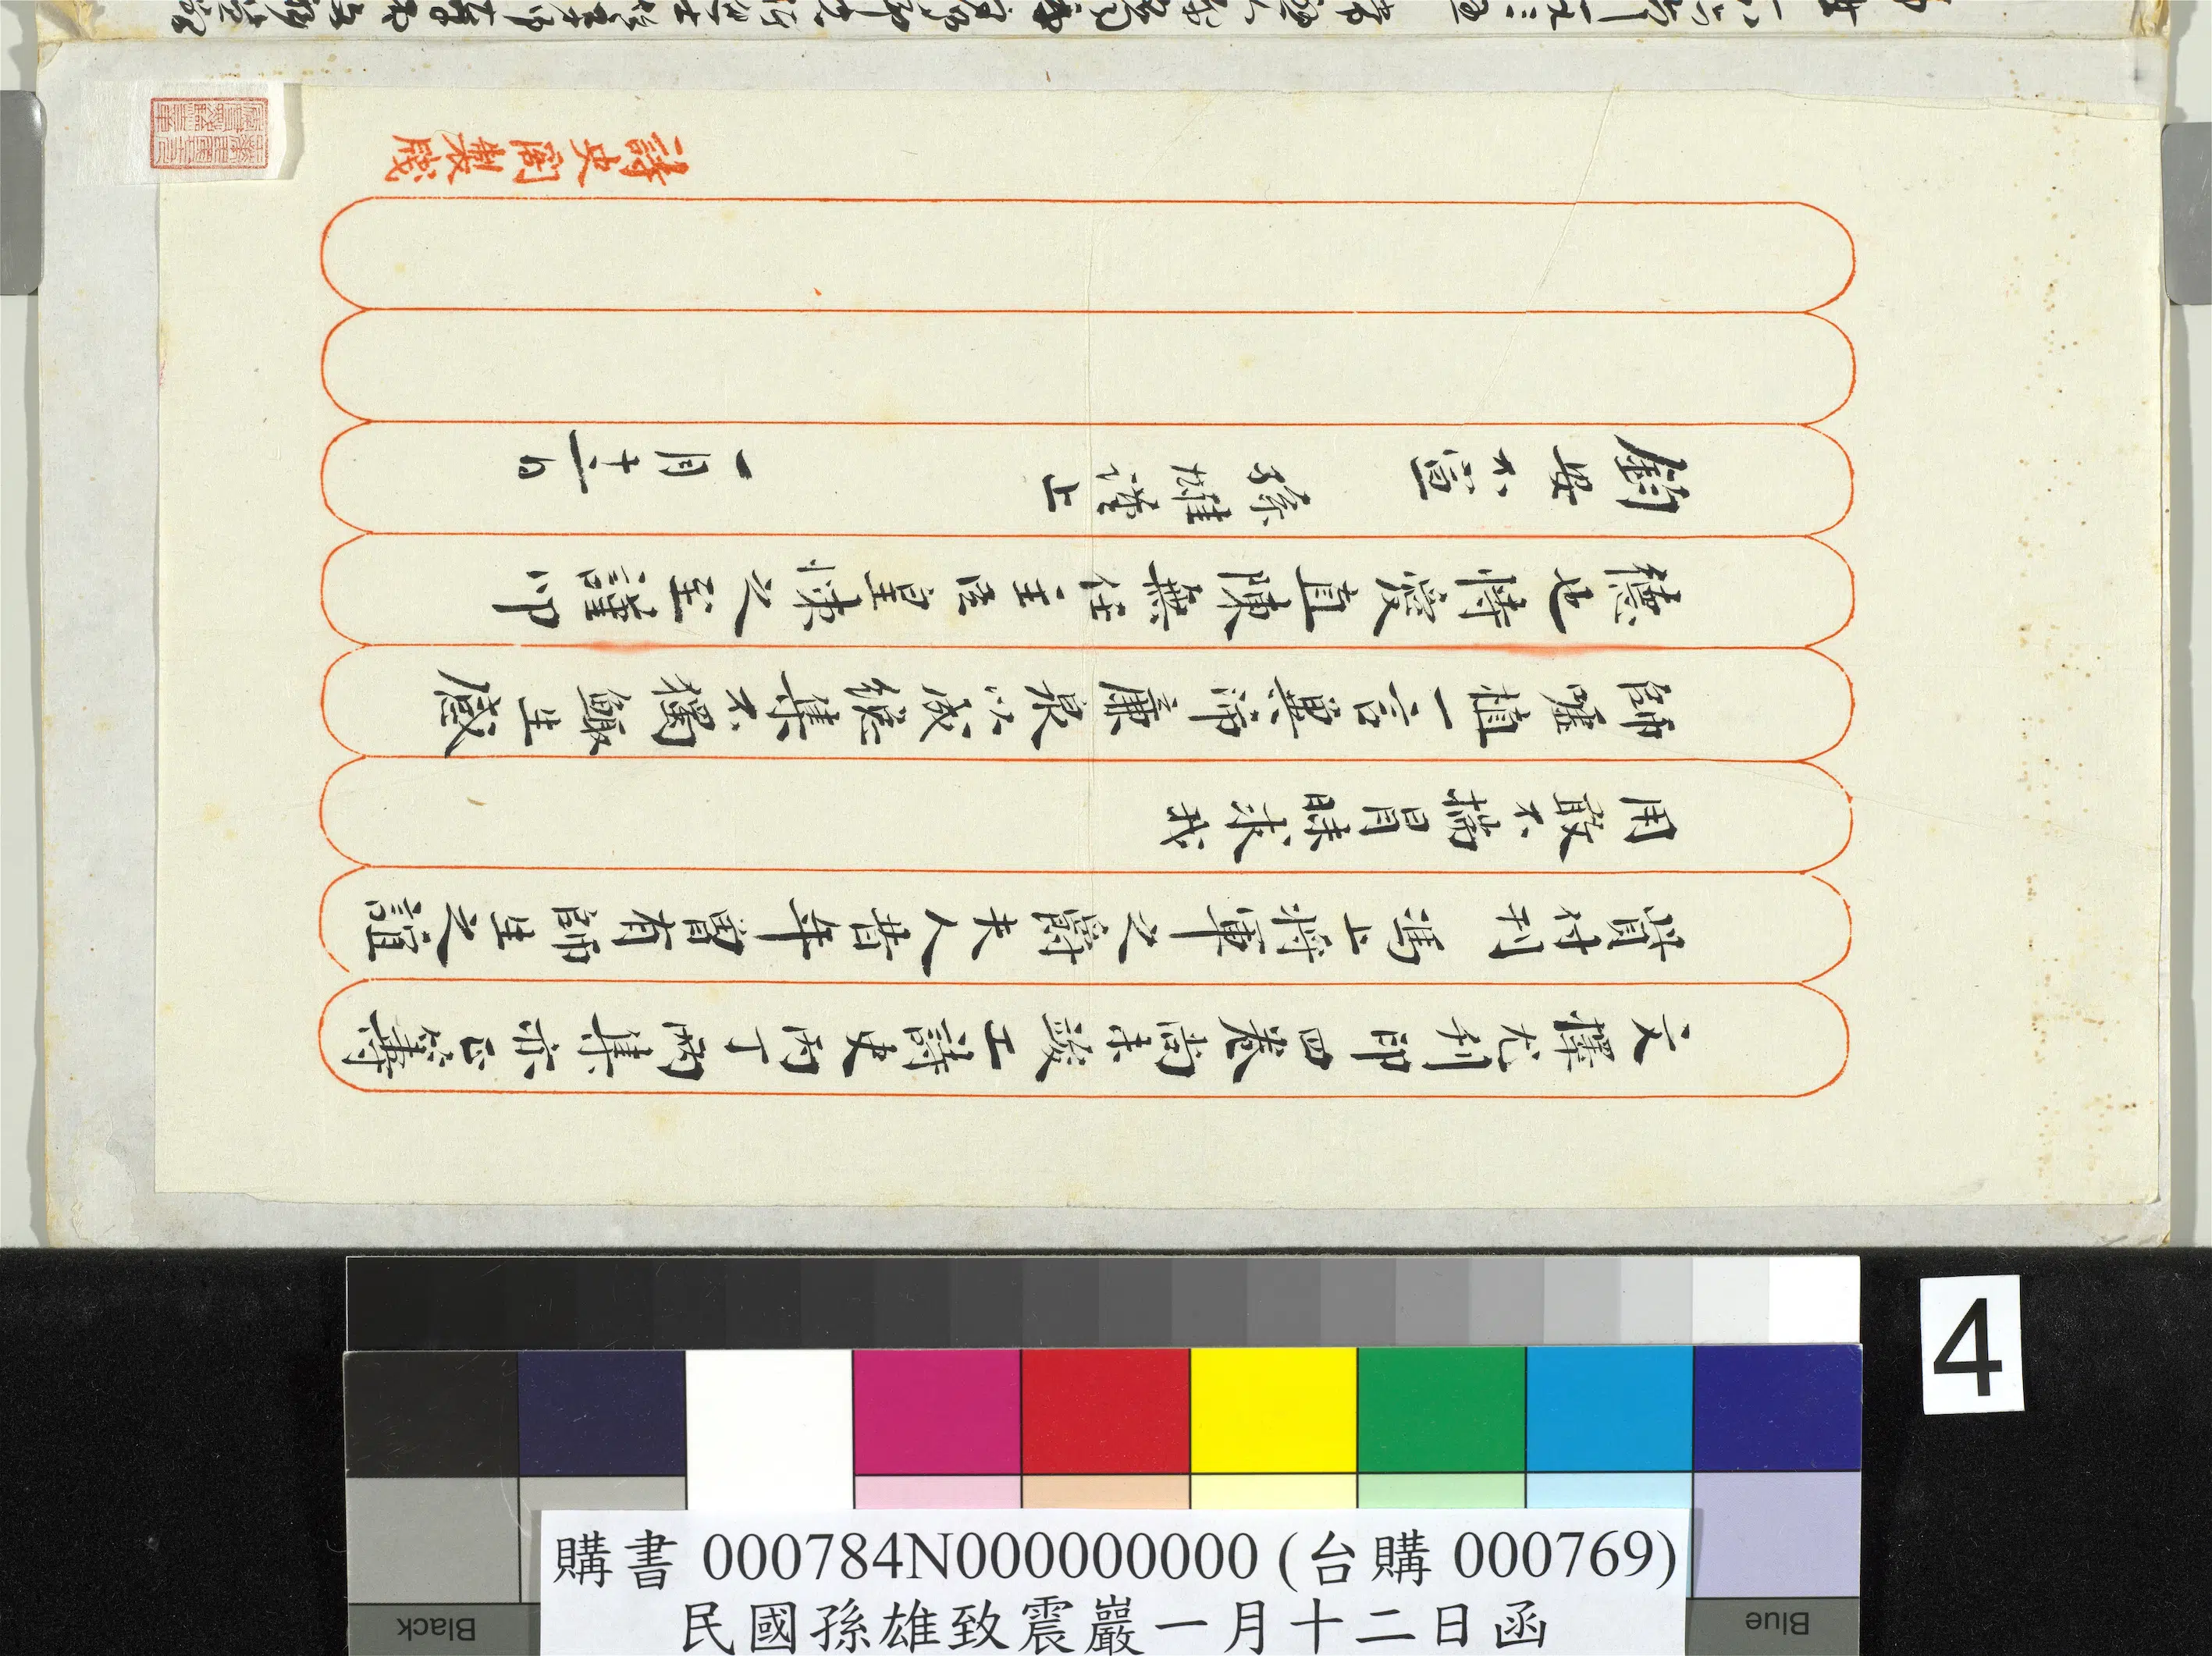 文擇尤刊印四卷尚未竣工詩史丙丁兩集亦正籌
貲付刊馮上將軍之爵夫人昔年曾有師生之誼
用敢不揣冒昧求我
師噓植一言畀沛廉泉以成總集不獨鯫生感
德也恃愛直陳無任主臣皇悚之至謹叩
鈞安不宣 孫雄謹上 一月十二日
詩史閣製牋
4
購書 000784N000000000 (台購 000769)
民國孫雄致震巖一月十二日函
Black
Blue